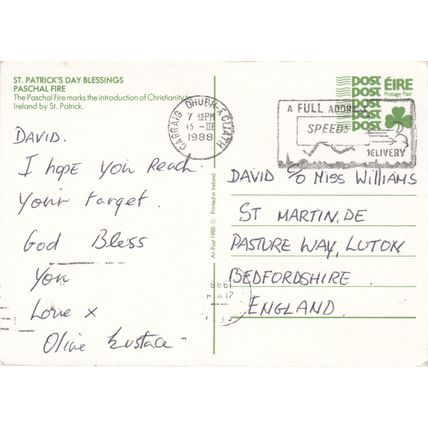 ST. PATRICK'S DAY BLESSINGS
PASCHAL FIRE
The Paschal Fire marks the introduction of Christianity to
Ireland by St. Patrick.
POST POST POST POST POST
ÉIRE
Postage Paid
CARRAIG DHUBH-ÁCLIATH
7 45PM
15 - III
1988
A FULL ADDRESS
SPEEDS
DELIVERY
DAVID.
I hope you Reach
Your target.
God Bless
You
Love x
Olive Eustace-
An Post 1988 © Printed in Ireland
DAVID C/O MISS WILLIAMS
ST MARTIN, DE
PASTURE WAY, LUTON
BEDFORDSHIRE.
ENGLAND.